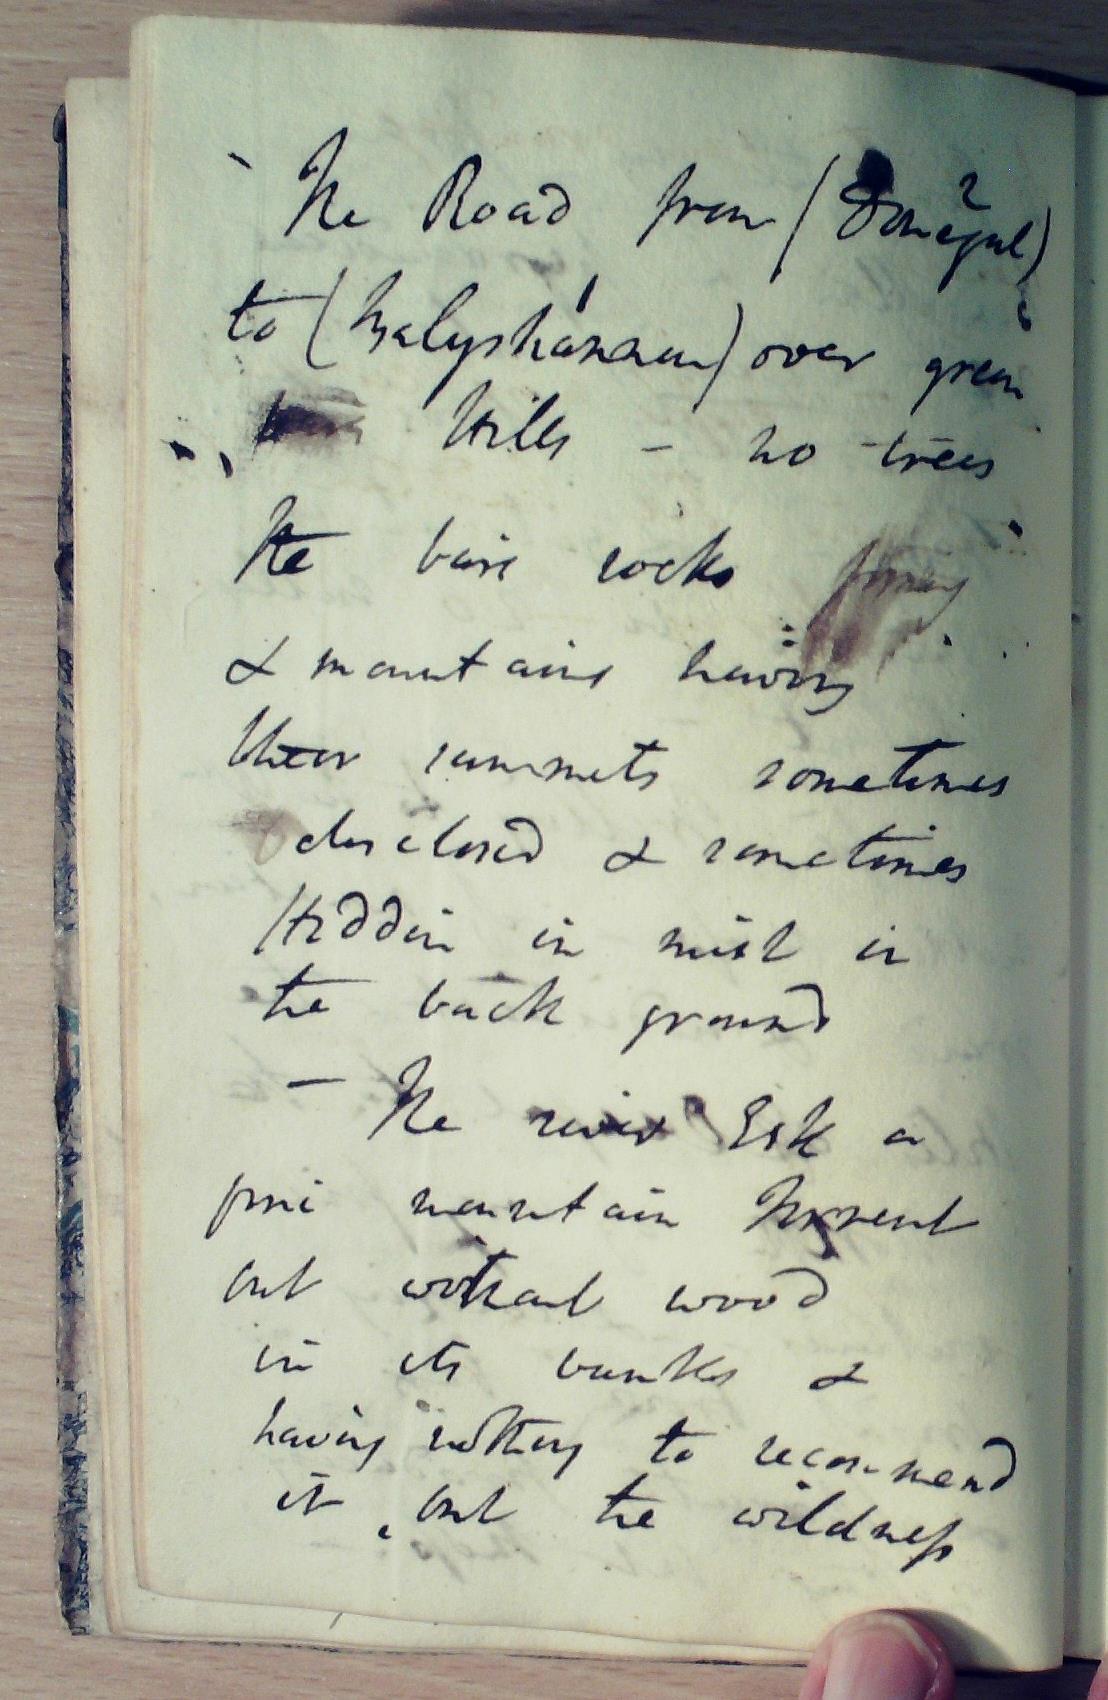 The Road from (Donegal)
to (Balyshannan) over green
Hills - no trees
The bare rocks
& mountains having
their summets sometimes
disclosed & sometimes
Hidden in mist in
the back ground
- The river Esk a
fine mountain Torrent
but without wood
in its banks &
having nothing to recommend
it but the wildness